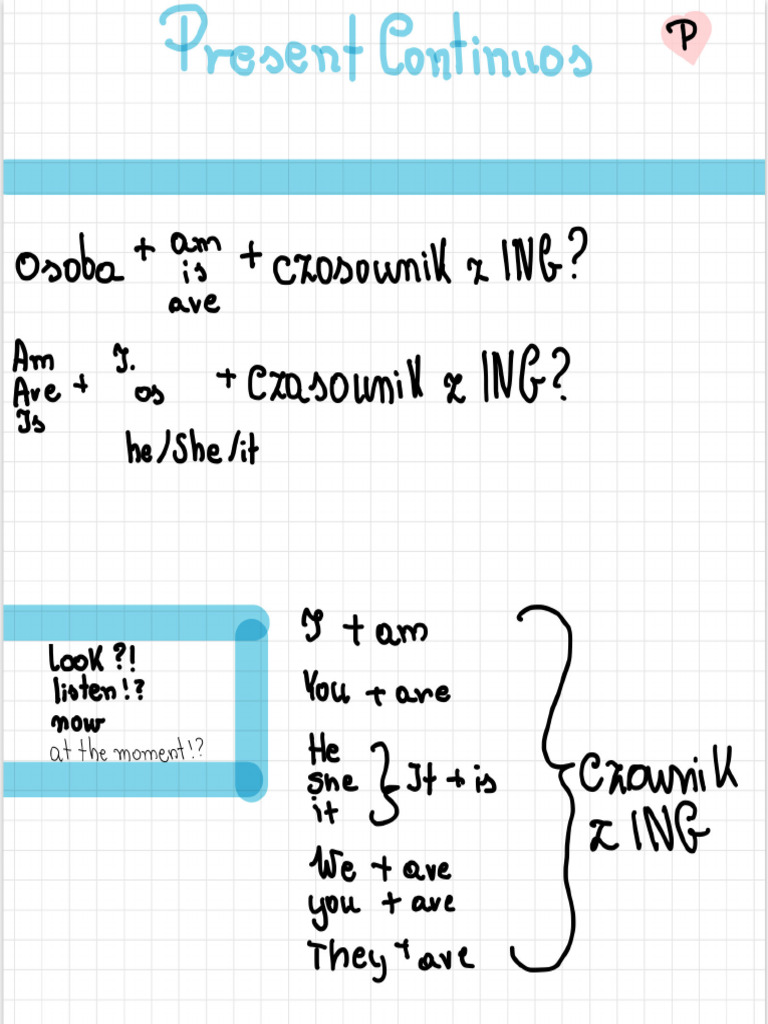 Present Continuos
P
osoba + am + czosownik z ING?
is
are
Am
Are + I. os + czasownik z ING?
Is
he/She/it
I + am
Look?!
listen!?
now
at the moment!?
You + are
He
She } It + is
it
czownik
z ING
We + are
you + are
They + are